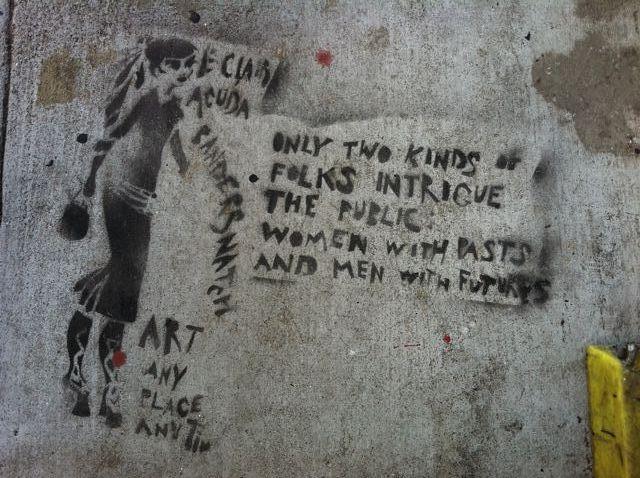 E CLAIR
ACUDA
BANDERSNATCH
ONLY TWO KINDS OF
FOLKS INTRIGUE
THE PUBLIC:
WOMEN WITH PASTS
AND MEN WITH FUTURES
ART
ANY
PLACE
ANY